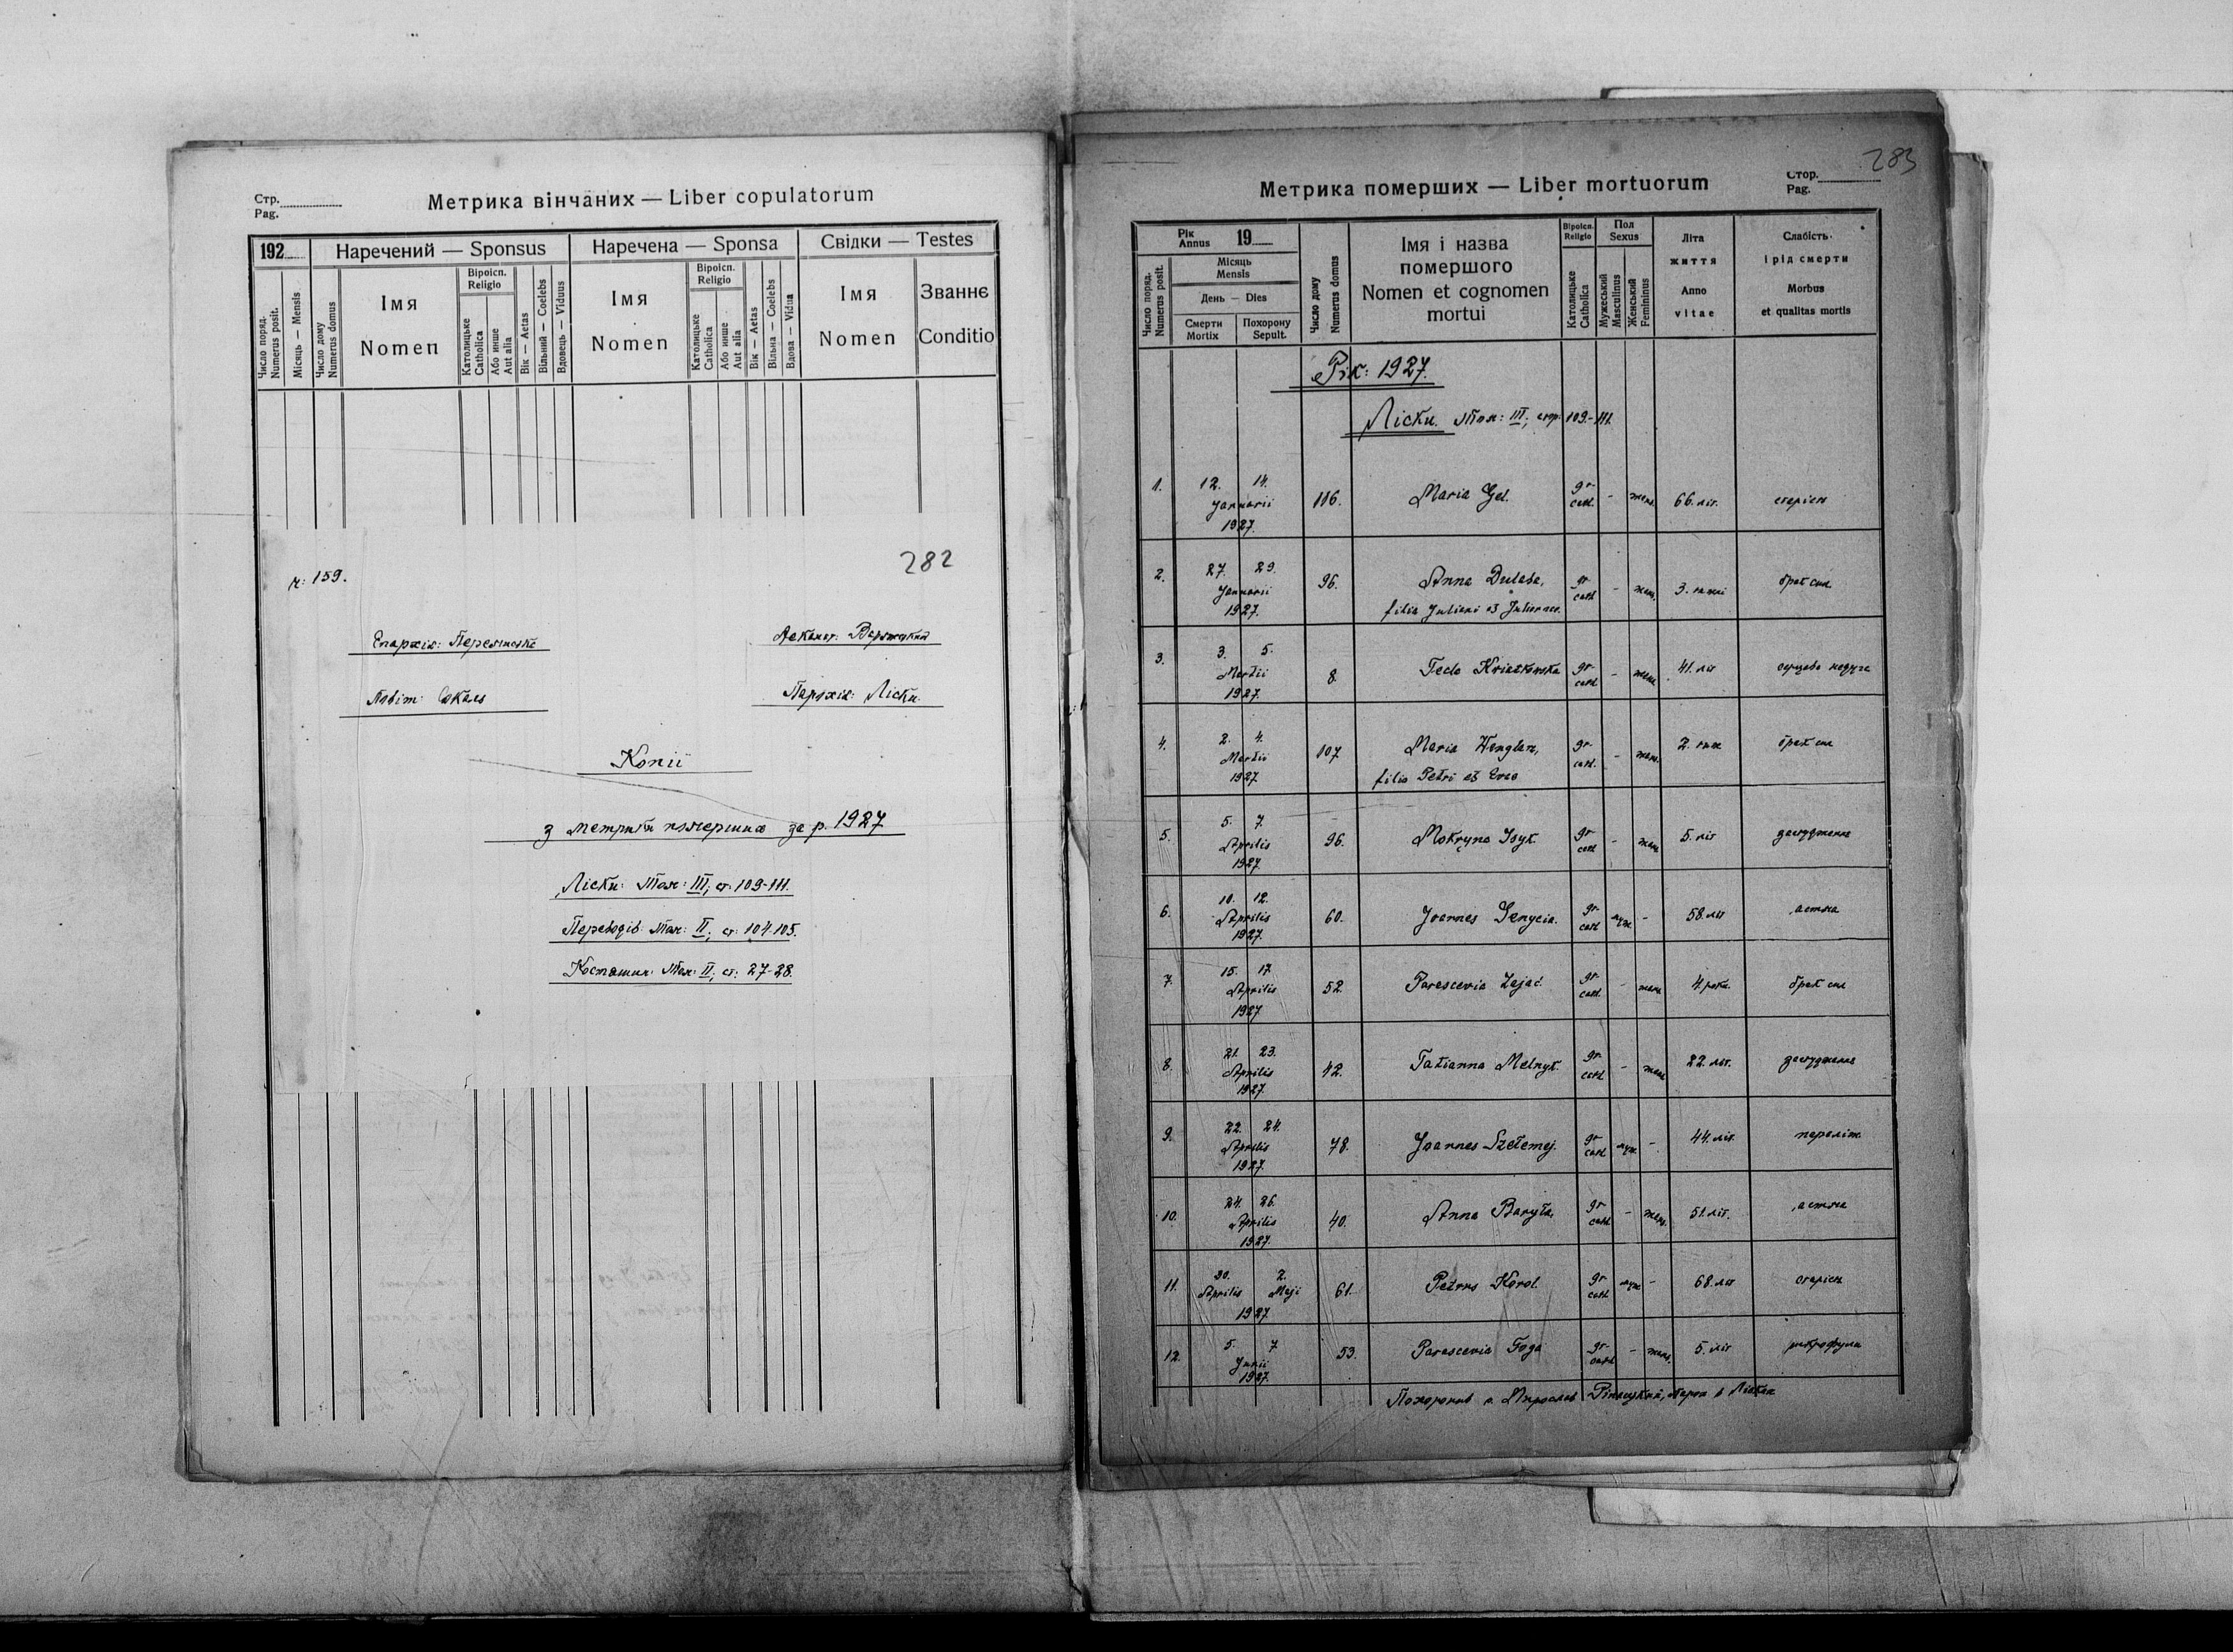 Стр.
Pag.
Метрика вінчаних — Liber copulatorum
192
Наречений — Sponsus
Наречена — Sponsa
Свідки — Testes
Число поряд.
Numerus posit.
Місяць — Mensis
Число дому
Numerus domus
Імя
Nomen
Віроісп.
Religio
Католицьке
Catholica
Або инше
Aut alia
Вік — Aetas
Вільний — Coelebs
Вдовець — Viduus
Імя
Nomen
Віроісп.
Religio
Католицьке
Catholica
Або инше
Aut alia
Вік — Aetas
Вільна — Coelebs
Вдова — Vidua
Імя
Nomen
Званнє
Conditio
282
ч: 159.
Епархія: Перемиська
Деканат: Варяжський
Повіт: Сокаль
Парохія: Ліски.
Копії
з метрики померших за р. 1927
Ліски: Том: III; ст: 109-111.
Переводів: Том: II; ст: 104-105.
Костяшин: Том: II; ст: 27-28.
283
Метрика померших — Liber mortuorum
Стор.
Pag.
Рік
Annus
19
Число поряд.
Numerus posit.
Місяць
Mensis
День — Dies
Смерти
Mortix
Похорону
Sepult.
Число дому
Numerus domus
Імя і назва
помершого
Nomen et cognomen
mortui
Віроісп.
Religio
Католицьке
Catholica
Пол
Sexus
Мужеський
Masculinus
Женський
Femininus
Літа
життя
Anno
vitae
Слабість
і рід смерти
Morbus
et qualitas mortis
Рік: 1927.
Ліски. Том: III; стор: 109-111.
1. 12. 14. Januarii 1927. 116. Maria Gel. gr. cath. - жен. 66. літ. старість
2. 27. 29. Januarii 1927. 96. Anna Dulaba, filia Juliani et Julianae. gr. cath. - жен. 3. брак сил
3. 3. 5. Martii 1927. 8. Tecla Kwiatkowska gr. cath. - жен. 41. літ серцева недуга
4. 2. 4. Martii 1927 107 Maria filia Petri et Evae gr. cath. - жен. 2. брак сил
5. 5. 7. Aprilis 1927. 96. Mokryna Isyk. gr. cath. - жен. 5. літ засудження
6. 10. 12. Aprilis 1927. 60. Joannes Senycia. gr. cath. муж - 58. літ астма
7. 15. 17. Aprilis 1927 52. Parascevia Zajac. gr. cath. - жен 4. роки. брак сил
8. 21. 23. Aprilis 1927. 42. Tatianna Melnyk. gr. cath. - жен 22. літ. засудження
9. 22. 24. Aprilis 1927. 78. Joannes Szełemej. gr. cath. муж. - 44. літ.
10. 24. 26. Aprilis 1927. 40. Anna Baryła. gr. cath. - жен. 51. літ. астма
11. 30. Aprilis 2. Maji 1927. 61. Petrus Korol. gr. cath. муж - 68. літ старість
12. 5. 7 Junii 1927. 53. Parascevia Goga gr. cath. - жен. 5. літ
Похоронив о. Мирослав Ріпецький, парох в Лісках